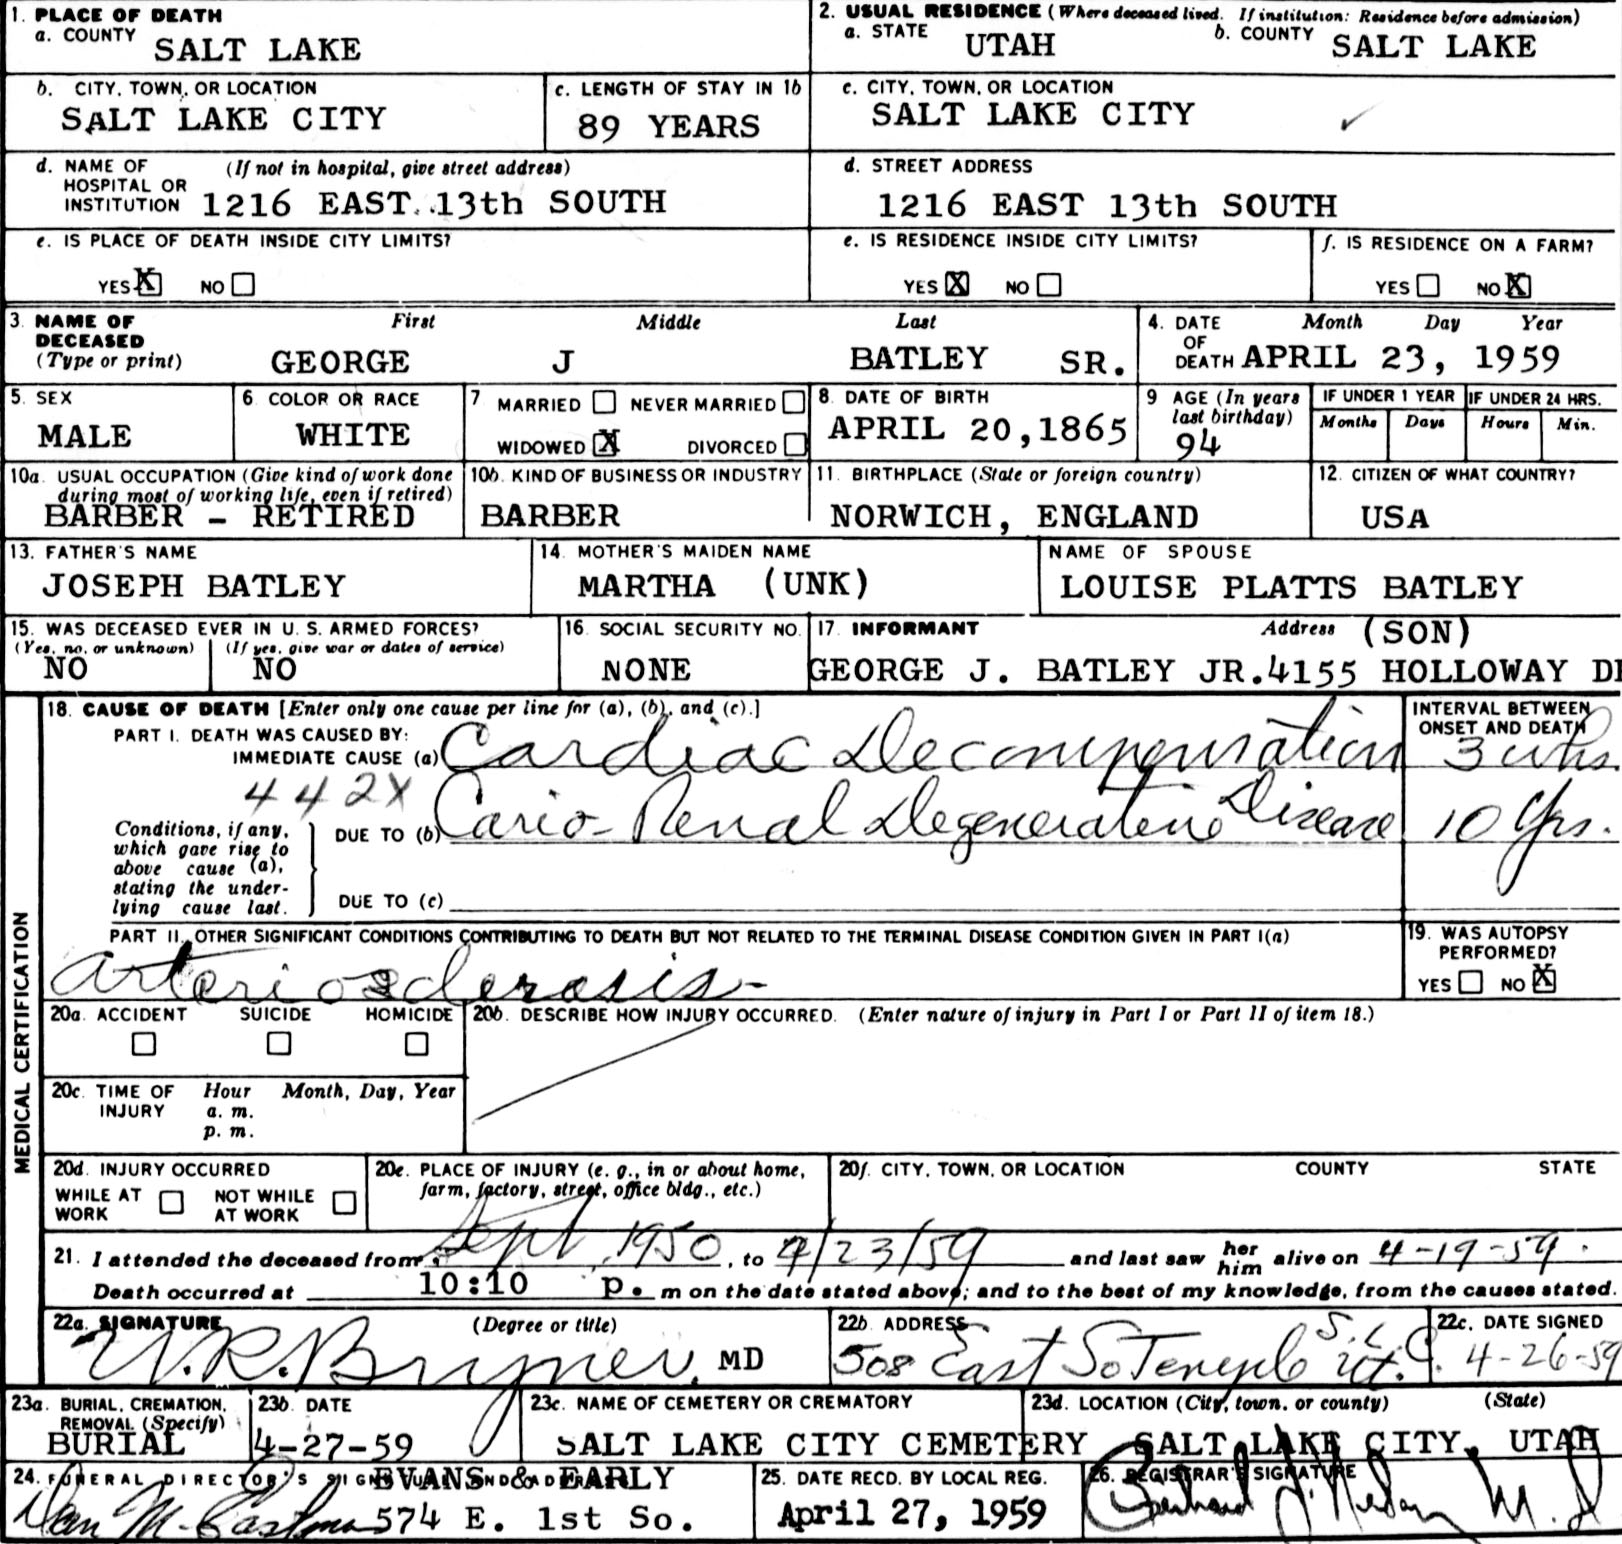 1. PLACE OF DEATH
a. COUNTY SALT LAKE
2. USUAL RESIDENCE (Where deceased lived. If institution: Residence before admission)
a. STATE UTAH b. COUNTY SALT LAKE
b. CITY, TOWN, OR LOCATION
SALT LAKE CITY
c. LENGTH OF STAY IN 1b
89 YEARS
c. CITY, TOWN, OR LOCATION
SALT LAKE CITY
d. NAME OF HOSPITAL OR INSTITUTION (If not in hospital, give street address)
1216 EAST 13th SOUTH
d. STREET ADDRESS
1216 EAST 13th SOUTH
e. IS PLACE OF DEATH INSIDE CITY LIMITS?
YES X NO
e. IS RESIDENCE INSIDE CITY LIMITS?
YES X NO
f. IS RESIDENCE ON A FARM?
YES NO X
3. NAME OF DECEASED (Type or print)
First Middle Last
GEORGE J BATLEY SR.
4. DATE OF DEATH Month Day Year
APRIL 23, 1959
5. SEX
MALE
6. COLOR OR RACE
WHITE
7 MARRIED NEVER MARRIED
WIDOWED X DIVORCED
8. DATE OF BIRTH
APRIL 20,1865
9 AGE (In years last birthday)
94
IF UNDER 1 YEAR
Months Days
IF UNDER 24 HRS.
Hours Min.
10a. USUAL OCCUPATION (Give kind of work done during most of working life, even if retired)
BARBER - RETIRED
10b. KIND OF BUSINESS OR INDUSTRY
BARBER
11. BIRTHPLACE (State or foreign country)
NORWICH, ENGLAND
12. CITIZEN OF WHAT COUNTRY?
USA
13. FATHER'S NAME
JOSEPH BATLEY
14. MOTHER'S MAIDEN NAME
MARTHA (UNK)
NAME OF SPOUSE
LOUISE PLATTS BATLEY
15. WAS DECEASED EVER IN U. S. ARMED FORCES?
(Yes, no, or unknown) (If yes, give war or dates of service)
NO NO
16. SOCIAL SECURITY NO.
NONE
17. INFORMANT Address (SON)
GEORGE J. BATLEY JR. 4155 HOLLOWAY DR
MEDICAL CERTIFICATION
18. CAUSE OF DEATH [Enter only one cause per line for (a), (b), and (c).]
INTERVAL BETWEEN ONSET AND DEATH
PART I. DEATH WAS CAUSED BY:
IMMEDIATE CAUSE (a) Cardiac Decompensation 3 whs.
442X
Conditions, if any, which gave rise to above cause (a), stating the underlying cause last.
DUE TO (b) Cario-Renal Degenerative Disease 10 Yrs.
DUE TO (c)
PART II. OTHER SIGNIFICANT CONDITIONS CONTRIBUTING TO DEATH BUT NOT RELATED TO THE TERMINAL DISEASE CONDITION GIVEN IN PART I(a)
Arteriosclerosis-
19. WAS AUTOPSY PERFORMED?
YES NO X
20a. ACCIDENT SUICIDE HOMICIDE
20b. DESCRIBE HOW INJURY OCCURRED. (Enter nature of injury in Part I or Part II of item 18.)
20c. TIME OF INJURY Hour Month, Day, Year
a. m.
p. m.
20d. INJURY OCCURRED
WHILE AT WORK NOT WHILE AT WORK
20e. PLACE OF INJURY (e. g., in or about home, farm, factory, street, office bldg., etc.)
20f. CITY, TOWN, OR LOCATION COUNTY STATE
21. I attended the deceased from Sept 1950, to 4/23/59 and last saw her him alive on 4-19-59.
Death occurred at 10:10 p. m on the date stated above; and to the best of my knowledge, from the causes stated.
22a. SIGNATURE (Degree or title)
W.R. Bryner, MD
22b. ADDRESS
508 East So Temple S.L.C. Ut.
22c. DATE SIGNED
4-26-59
23a. BURIAL, CREMATION, REMOVAL (Specify)
BURIAL
23b. DATE
4-27-59
23c. NAME OF CEMETERY OR CREMATORY
SALT LAKE CITY CEMETERY
23d. LOCATION (City, town, or county) (State)
SALT LAKE CITY, UTAH
24. FUNERAL DIRECTOR'S SIGNATURE AND ADDRESS
EVANS & EARLY
574 E. 1st So.
25. DATE RECD. BY LOCAL REG.
April 27, 1959
26. REGISTRAR'S SIGNATURE
M.D